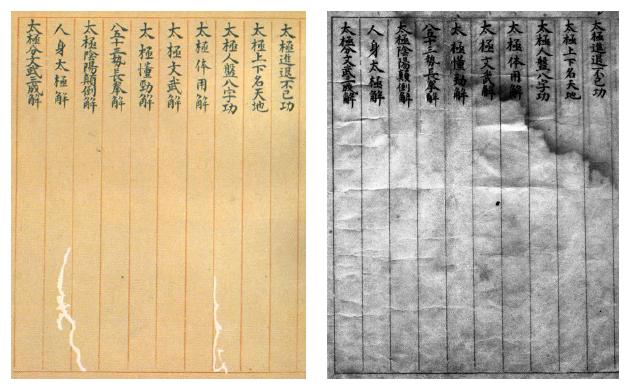 太極進退不已功
太極上下名天地
太極人盤八字功
太極体用解
太極文武解
太極懂勁解
八五十三勢長拳解
太極陰陽顛倒解
人身太極解
太極分文武三成解
太極進退不已功
太極上下名天地
太極人盤八字功
太極体用解
太極文武解
太極懂勁解
八五十三勢長拳解
太極陰陽顛倒解
人身太極解
太極分文武三成解